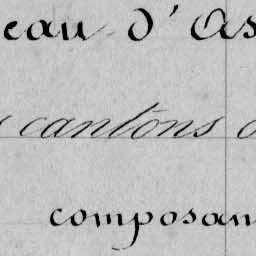 eau d'As
cantons
composan